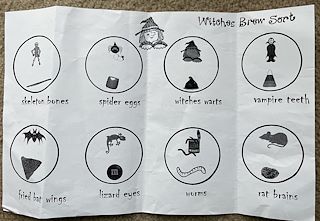 Witches Brew Sort
skeleton bones
spider eggs
witches warts
vampire teeth
fried bat wings
lizard eyes
worms
rat brains
m